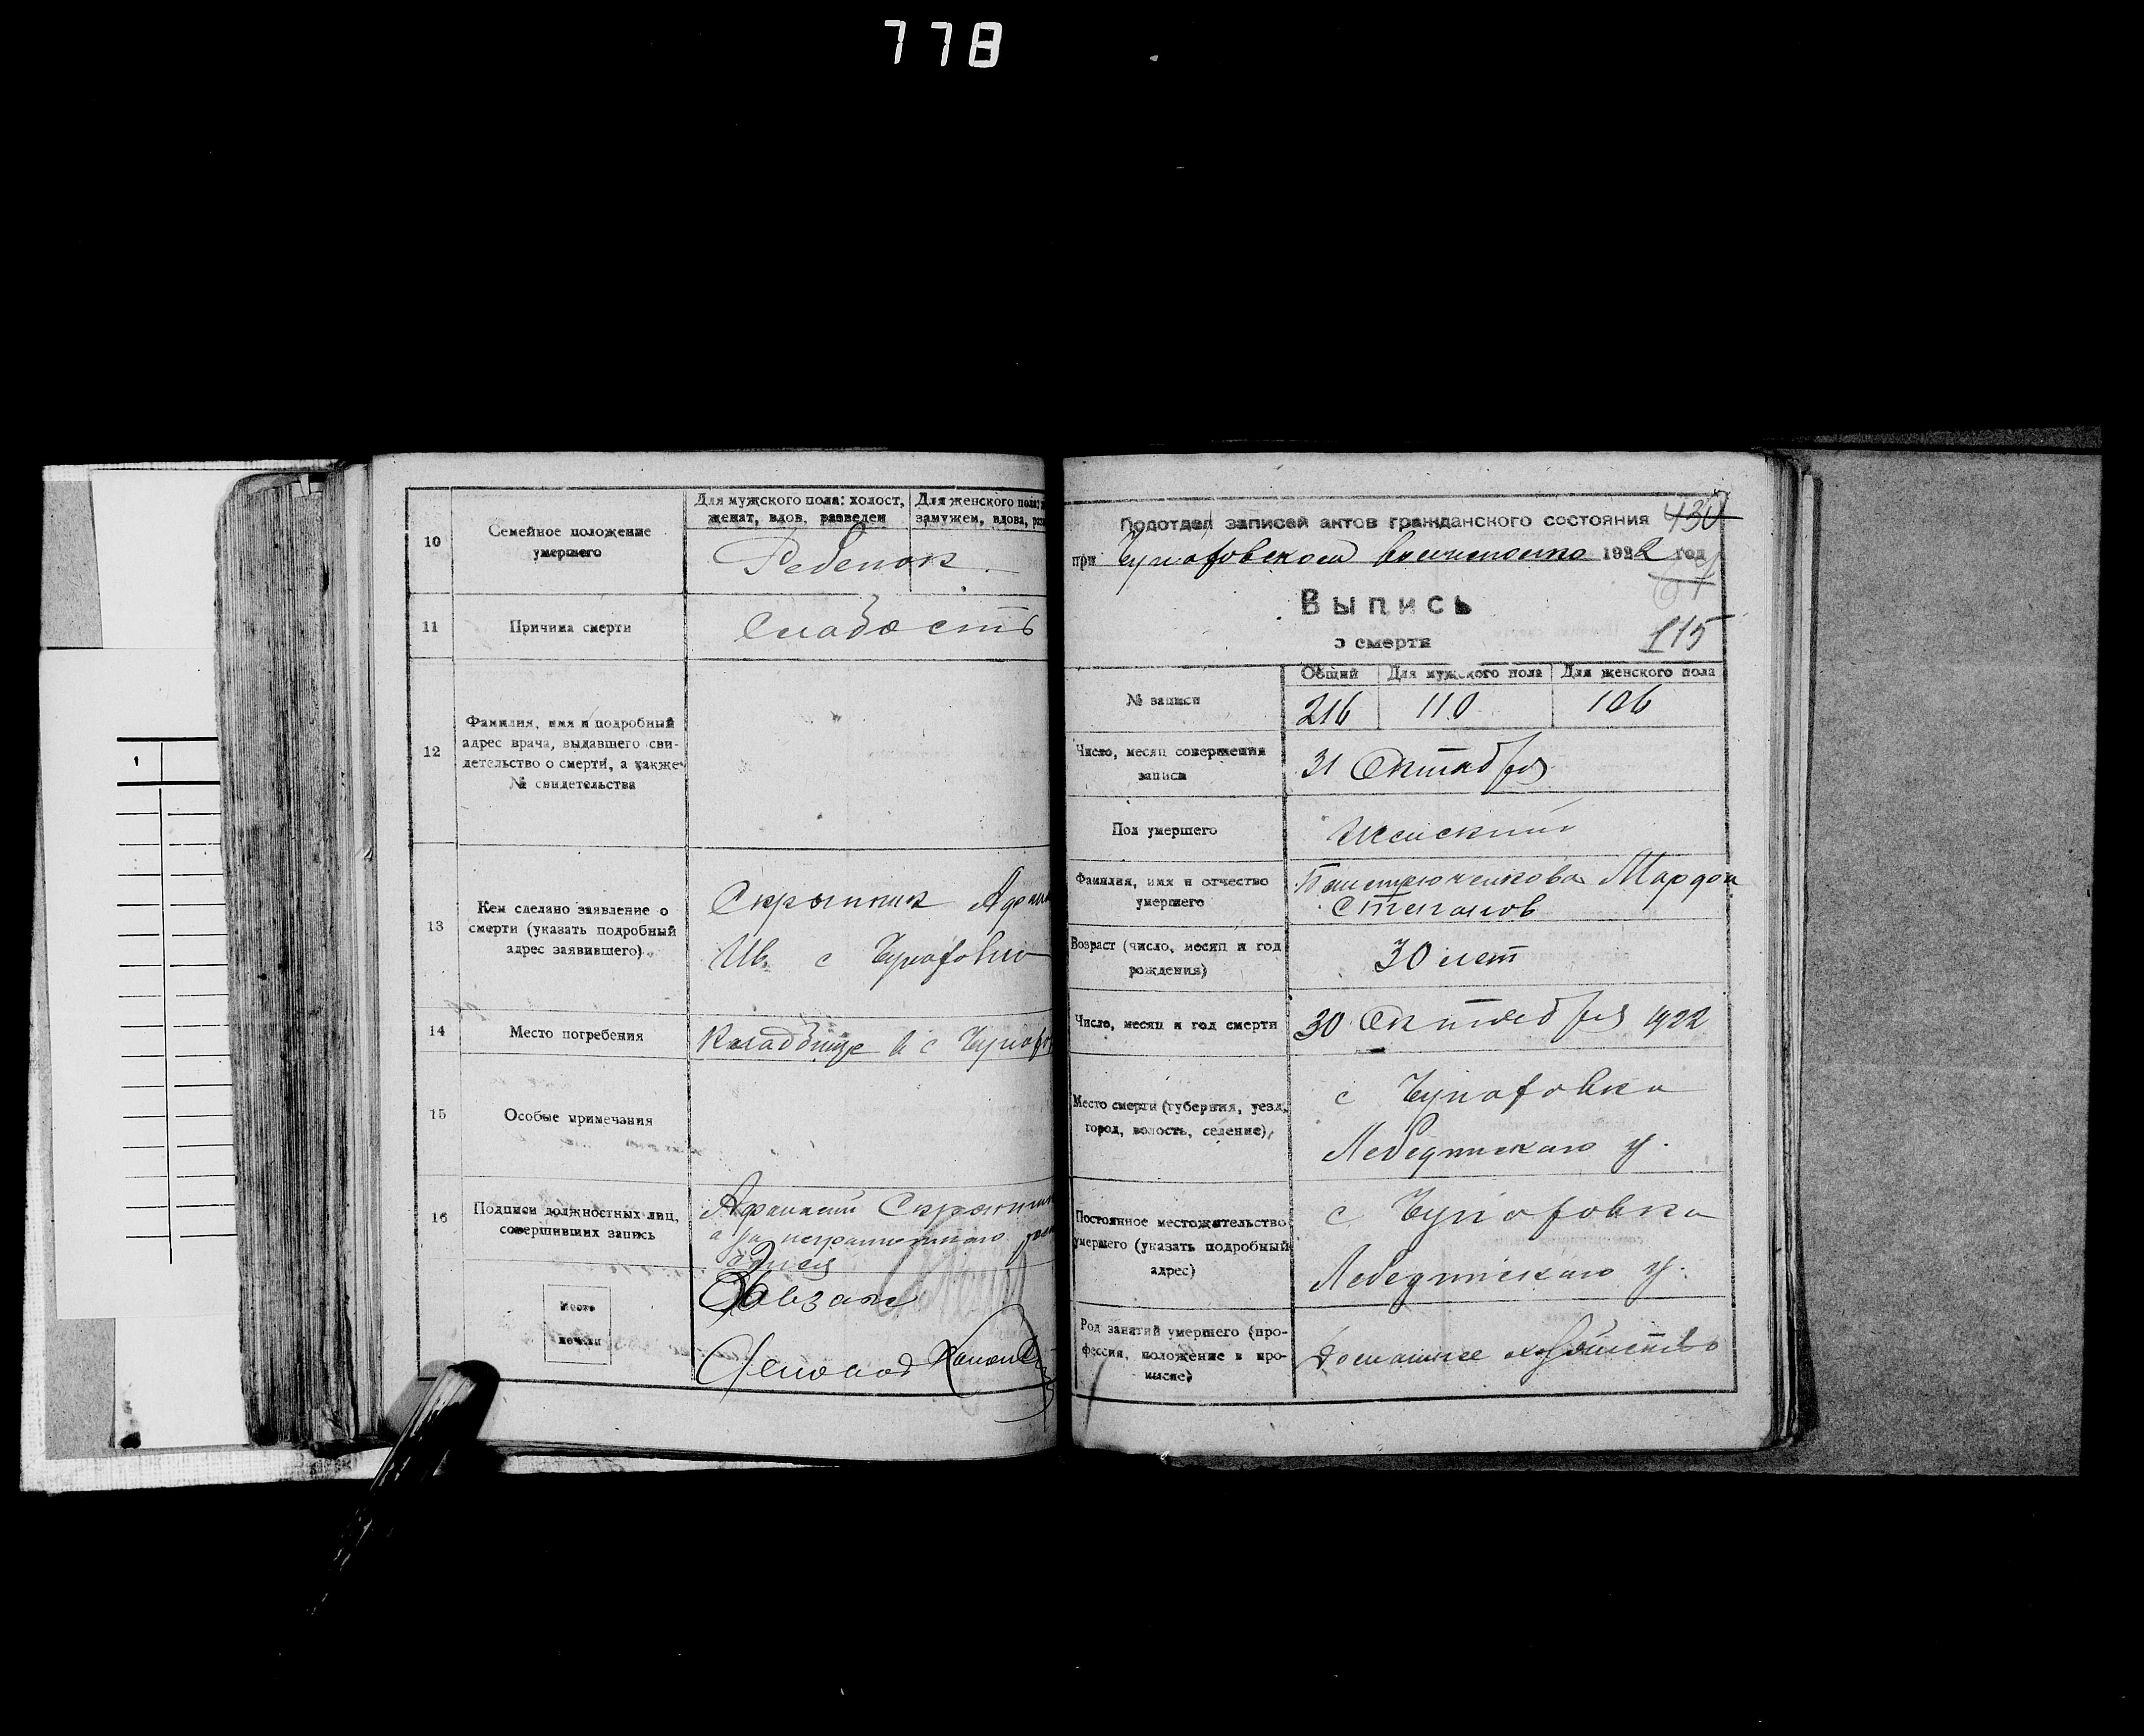 778
1
10
Семейное положение
умершего
Для мужского пола: холост,
женат, вдов, разведен
Для женского пола:
замужем, вдова,
Ребенок
11
Причина смерти
Слабость
12
Фамилия, имя и подробный
адрес врача, выдавшего сви-
детельство о смерти, а также
№ свидетельства
13
Кем сделано заявление о
смерти (указать подробный
адрес заявившего).
Скрыпник
Ив. с
14
Место погребения
Кладбище в с
15
Особые примечания
16
Подписи должностных лиц,
совершивших запись
Афанасий
а за неграмотного
Место
печати
Подотдел записей актов гражданского состояния
430
при 1922 год
Выпись
о смерти
115
№ записи
Общий
Для мужского пола
Для женского пола
216
110
106
Число, месяц совершения
записи
31 Октября
Пол умершего
Женский
Фамилия, имя и отчество
умершего
Степанов
Возраст (число, месяц и год
рождения)
30 лет
Число, месяц и год смерти
30 Октября 1922
Место смерти (губерния, уезд,
город, волость, селение),
с Чупаховка
Лебединскаго у.
Постоянное местожительство
умершего (указать подробный
адрес)
с Чупаховка
Лебединскаго у.
Род занятий умершего (про-
фессия, положение в про-
мысле)
Домашнее хозяйство